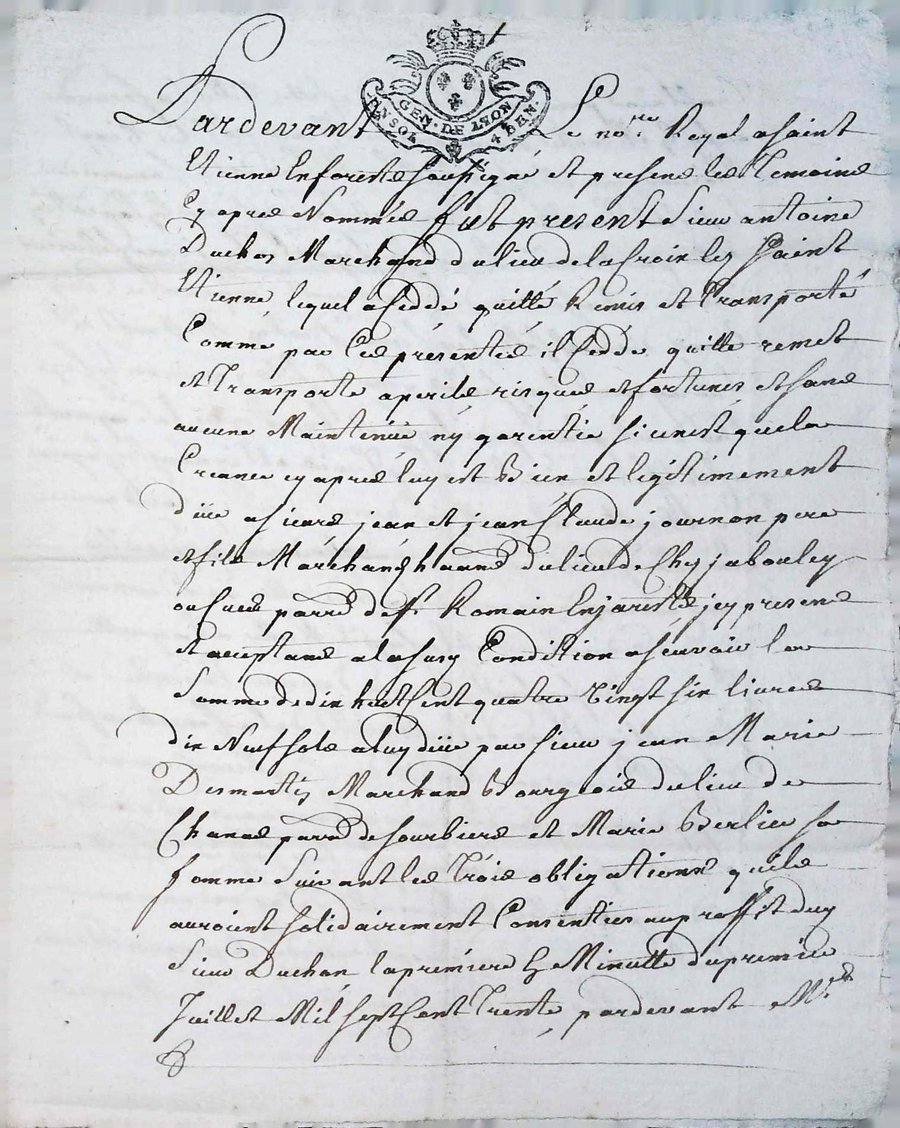 GEN. DE LYON
UN SOL 4 DEN.
Pardevant Le no.re Royal a saint
Etienne En forests soussigné et presens les Temoins
Cy apres Nommés fut present Sieur antoine
Duchon Marchand du lieu de la Croix lez Saint
Etienne, lequel a ceddé quitté Remis et Transporté
Comme par Ces présentes il Cedde quitte remet
et Transporte a perils risques et fortunes et sans
aucune Maintenüe ny garentie si ce n'est que la
Creance cy apres luy est Bien et legitimement
düe a sieurs jean et jean Claude journon pere
et fils Marchands du lieu de Chez jabouley
parr.e de s.t Romain En jarests jcy presens
et acceptans a la Condition a scavoir la
Somme de dix huit Cent quatre vingt six livres
dix Neuf sols a luy düe par sieur jean Marie
Desmartis Marchand Bourgeois du lieu de
Chanas parr.e de sourbiers et Marie Berlier sa
femme Suivant les Trois obligations qu'ils
auroient solidairement Consenties au proffit duy
Sieur Duchon la premiere Minutte du premier
Juillet Mil sept Cent Trente pardevant M.e